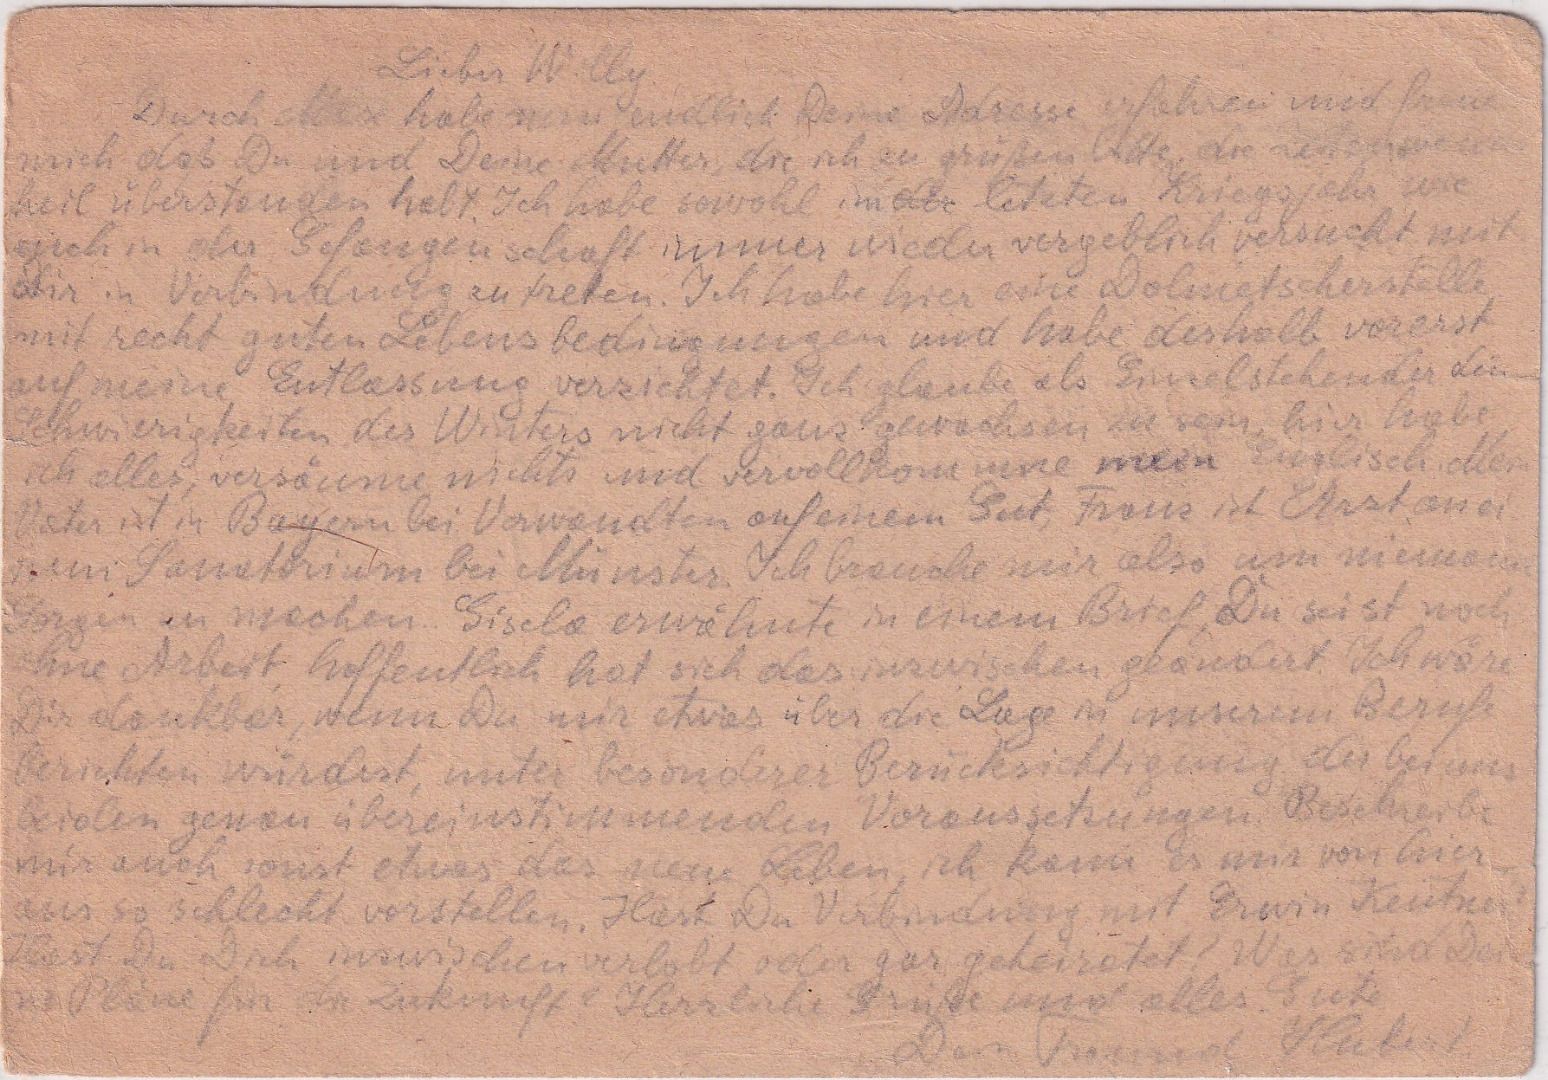 Lieber Willy
Durch Max habe nun endlich Deine Adresse erfahren und freue
mich das Du und Deine Mutter, die ich zu grüßen bitte, die
heil überstanden habt. Ich habe sowohl im letzten Kriegsjahr wie
auch in der Gefangenschaft immer wieder vergeblich versucht mit
Dir in Verbindung zu treten. Ich habe hier eine Dolmetscherstelle
mit recht guten Lebensbedingungen und habe deshalb vorerst
auf meine Entlassung verzichtet. Ich glaube als Einzelstehender den
Schwierigkeiten des Winters nicht ganz gewachsen zu sein, hier habe
ich alles, versäume nichts und vervollkommne mein Englisch. Mein
Vater ist in Bayern bei Verwandten auf einem Gut, Franz ist Arzt an ei
nem Sanatorium bei Münster. Ich brauche mir also um niemand
Sorgen zu machen. Gisela erwähnte in einem Brief, Du seist noch
ohne Arbeit, hoffentlich hat sich das inzwischen geändert. Ich wäre
Dir dankbar, wenn Du mir etwas über die Lage in unserem Beruf
berichten würdest, unter besonderer Berücksichtigung der bei uns
beiden genau übereinstimmenden Voraussetzungen. Beschreibe
mir auch sonst etwas das neue Leben, ich kann es mir von hier
aus so schlecht vorstellen. Hast Du Verbindung mit Erwin
Hast Du Dich inzwischen verlobt oder gar geheiratet? Was sind Dei
ne Pläne für die Zukunft? Herzliche Grüße und alles Gute
Dein Freund Hubert.